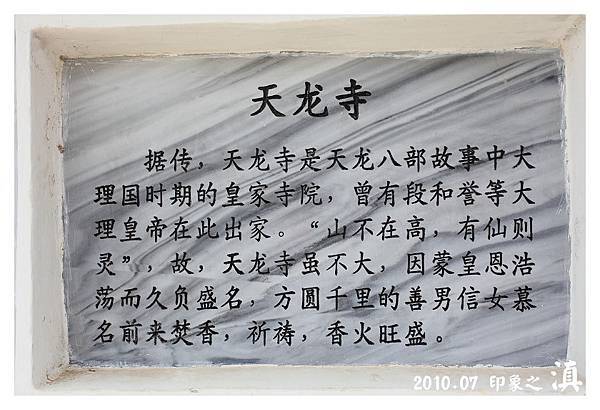 天龙寺
据传，天龙寺是天龙八部故事中大
理国时期的皇家寺院，曾有段和誉等大
理皇帝在此出家。“山不在高，有仙则
灵”，故，天龙寺虽不大，因蒙皇恩浩
荡而久负盛名，方圆千里的善男信女慕
名前来焚香，祈祷，香火旺盛。
2010.07 印象之 滇